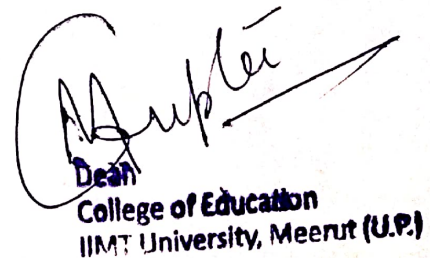 Gupta
Dean
College of Education
IIMT University, Meerut (U.P.)